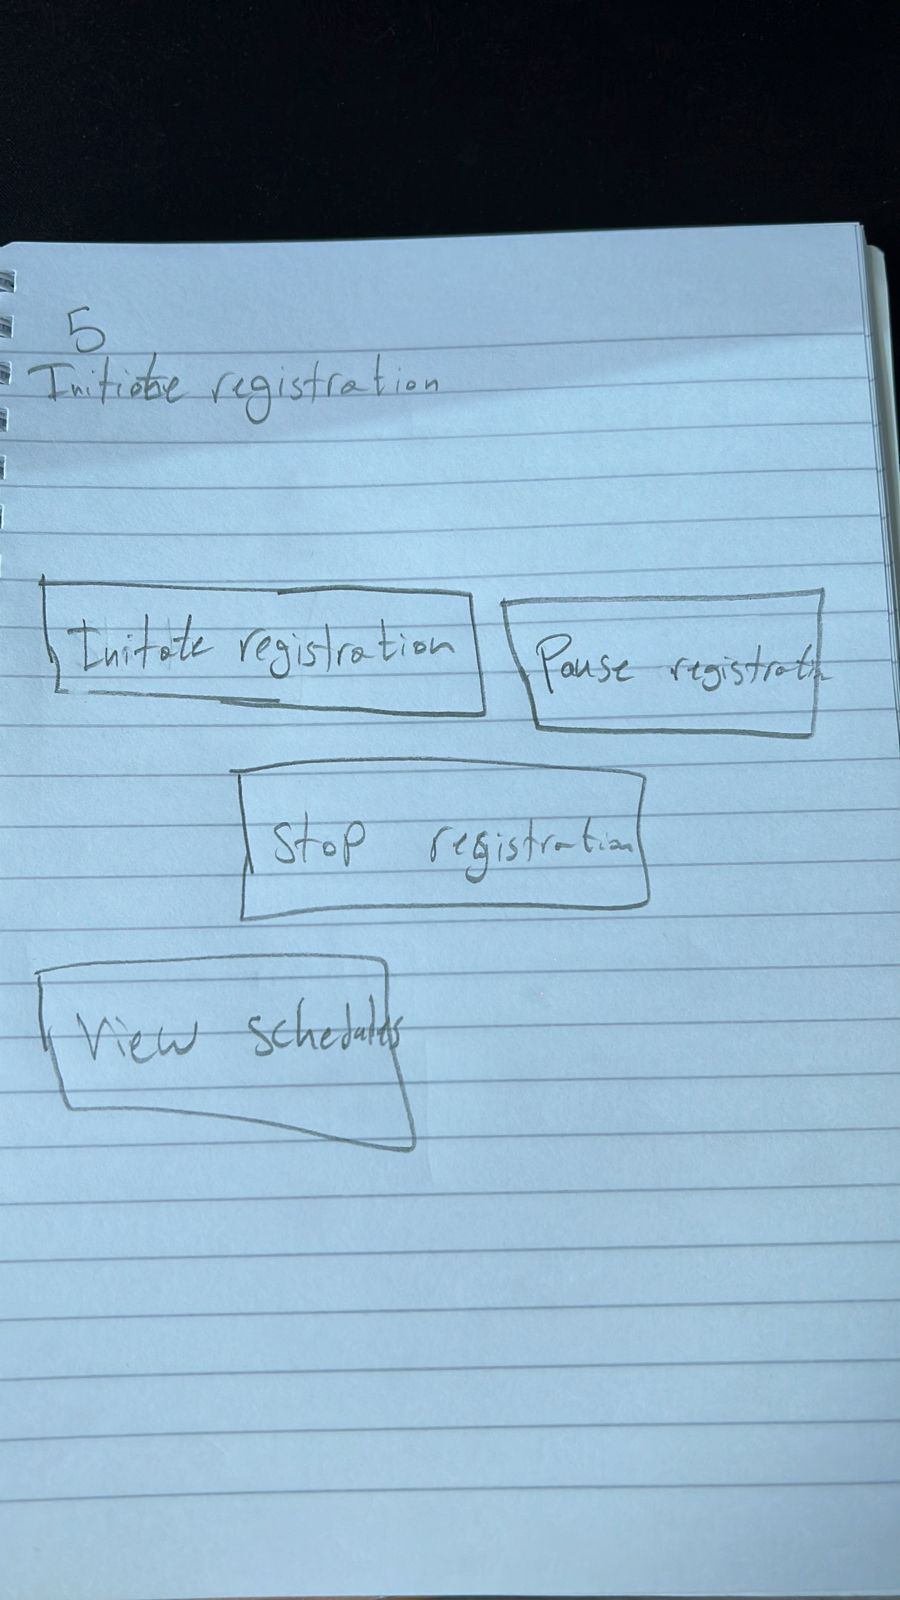 5
Initiate registration
Initate registration
Pause registratn
Stop registration
View schedules